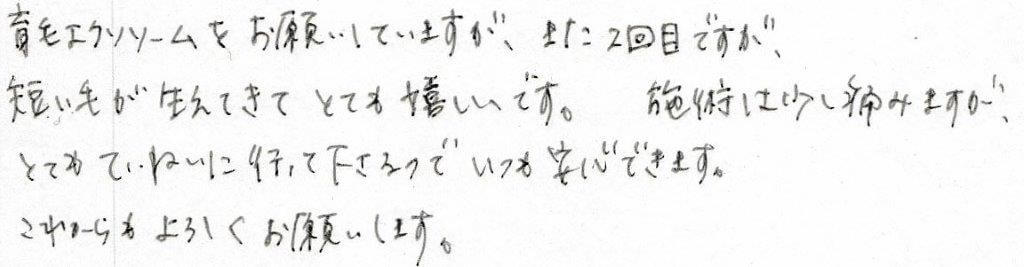 育毛エクソソームをお願いしていますが、まだ2回目ですが、
短い毛が生えてきてとても嬉しいです。 施術は少し痛みますが、
とてもていねいに行って下さるのでいつも安心できます。
これからもよろしくお願いします。